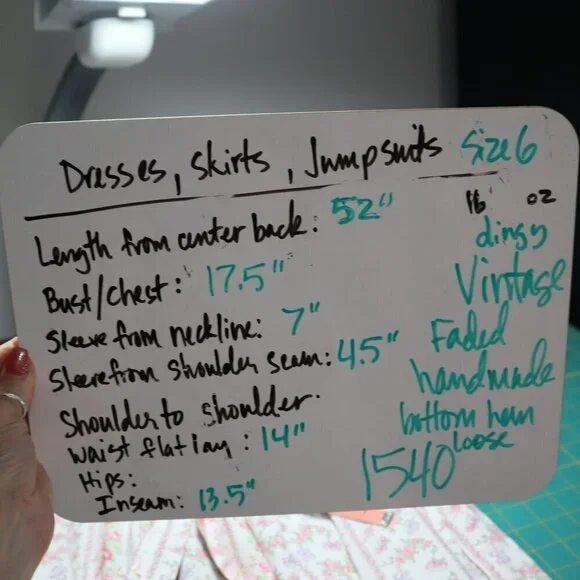 Dresses, Skirts, Jumpsuits Size 6
lb oz
Length from center back: 52"
dingy
Bust/Chest: 17.5"
Vintage
Sleeve from neckline: 7"
Faded
Sleeve from shoulder seam: 4.5"
handmade
Shoulder to shoulder:
bottom hem
loose
Waist flat lay: 14"
1540
Hips:
Inseam: 13.5"